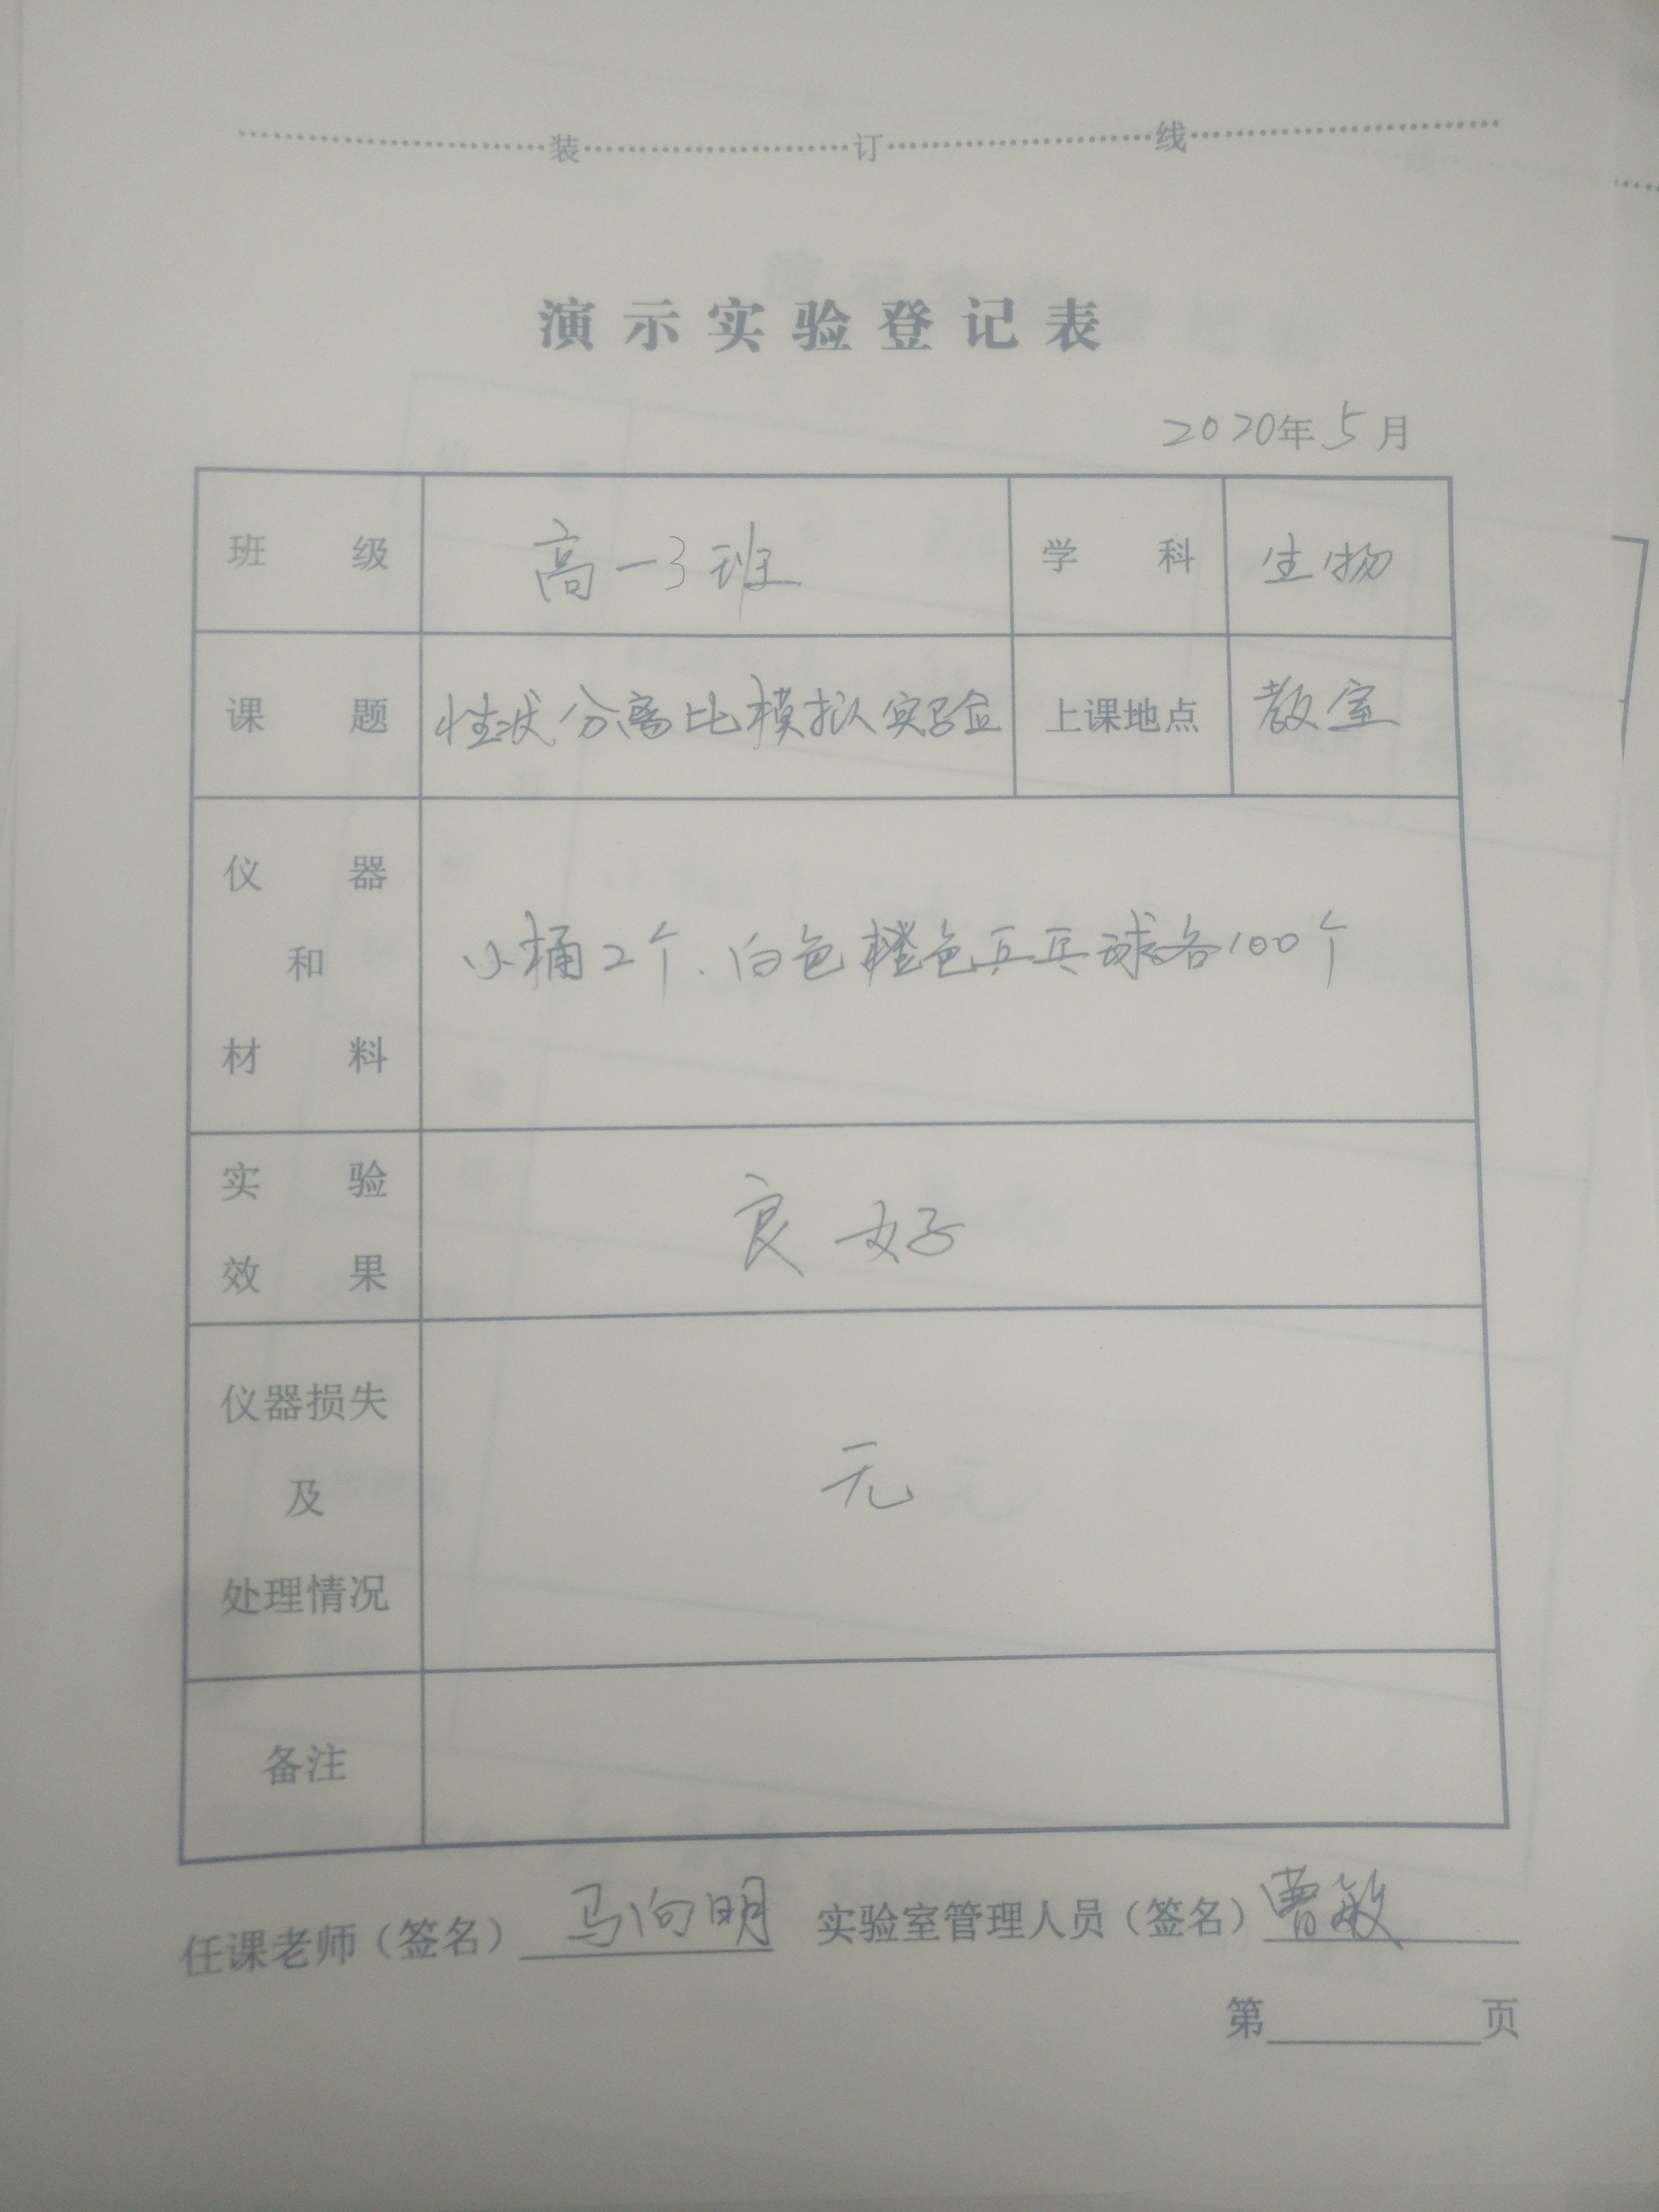 装 订 线
演示实验登记表
2020年5月
班级 高一3班 学科 生物
课题 性状分离比模拟实验 上课地点 教室
仪器
和 小桶2个、白色橙色乒乓球各100个
材料
实验
效果 良好
仪器损失
及 无
处理情况
备注
任课老师（签名） 马向明 实验室管理人员（签名） 曹敏
第 页